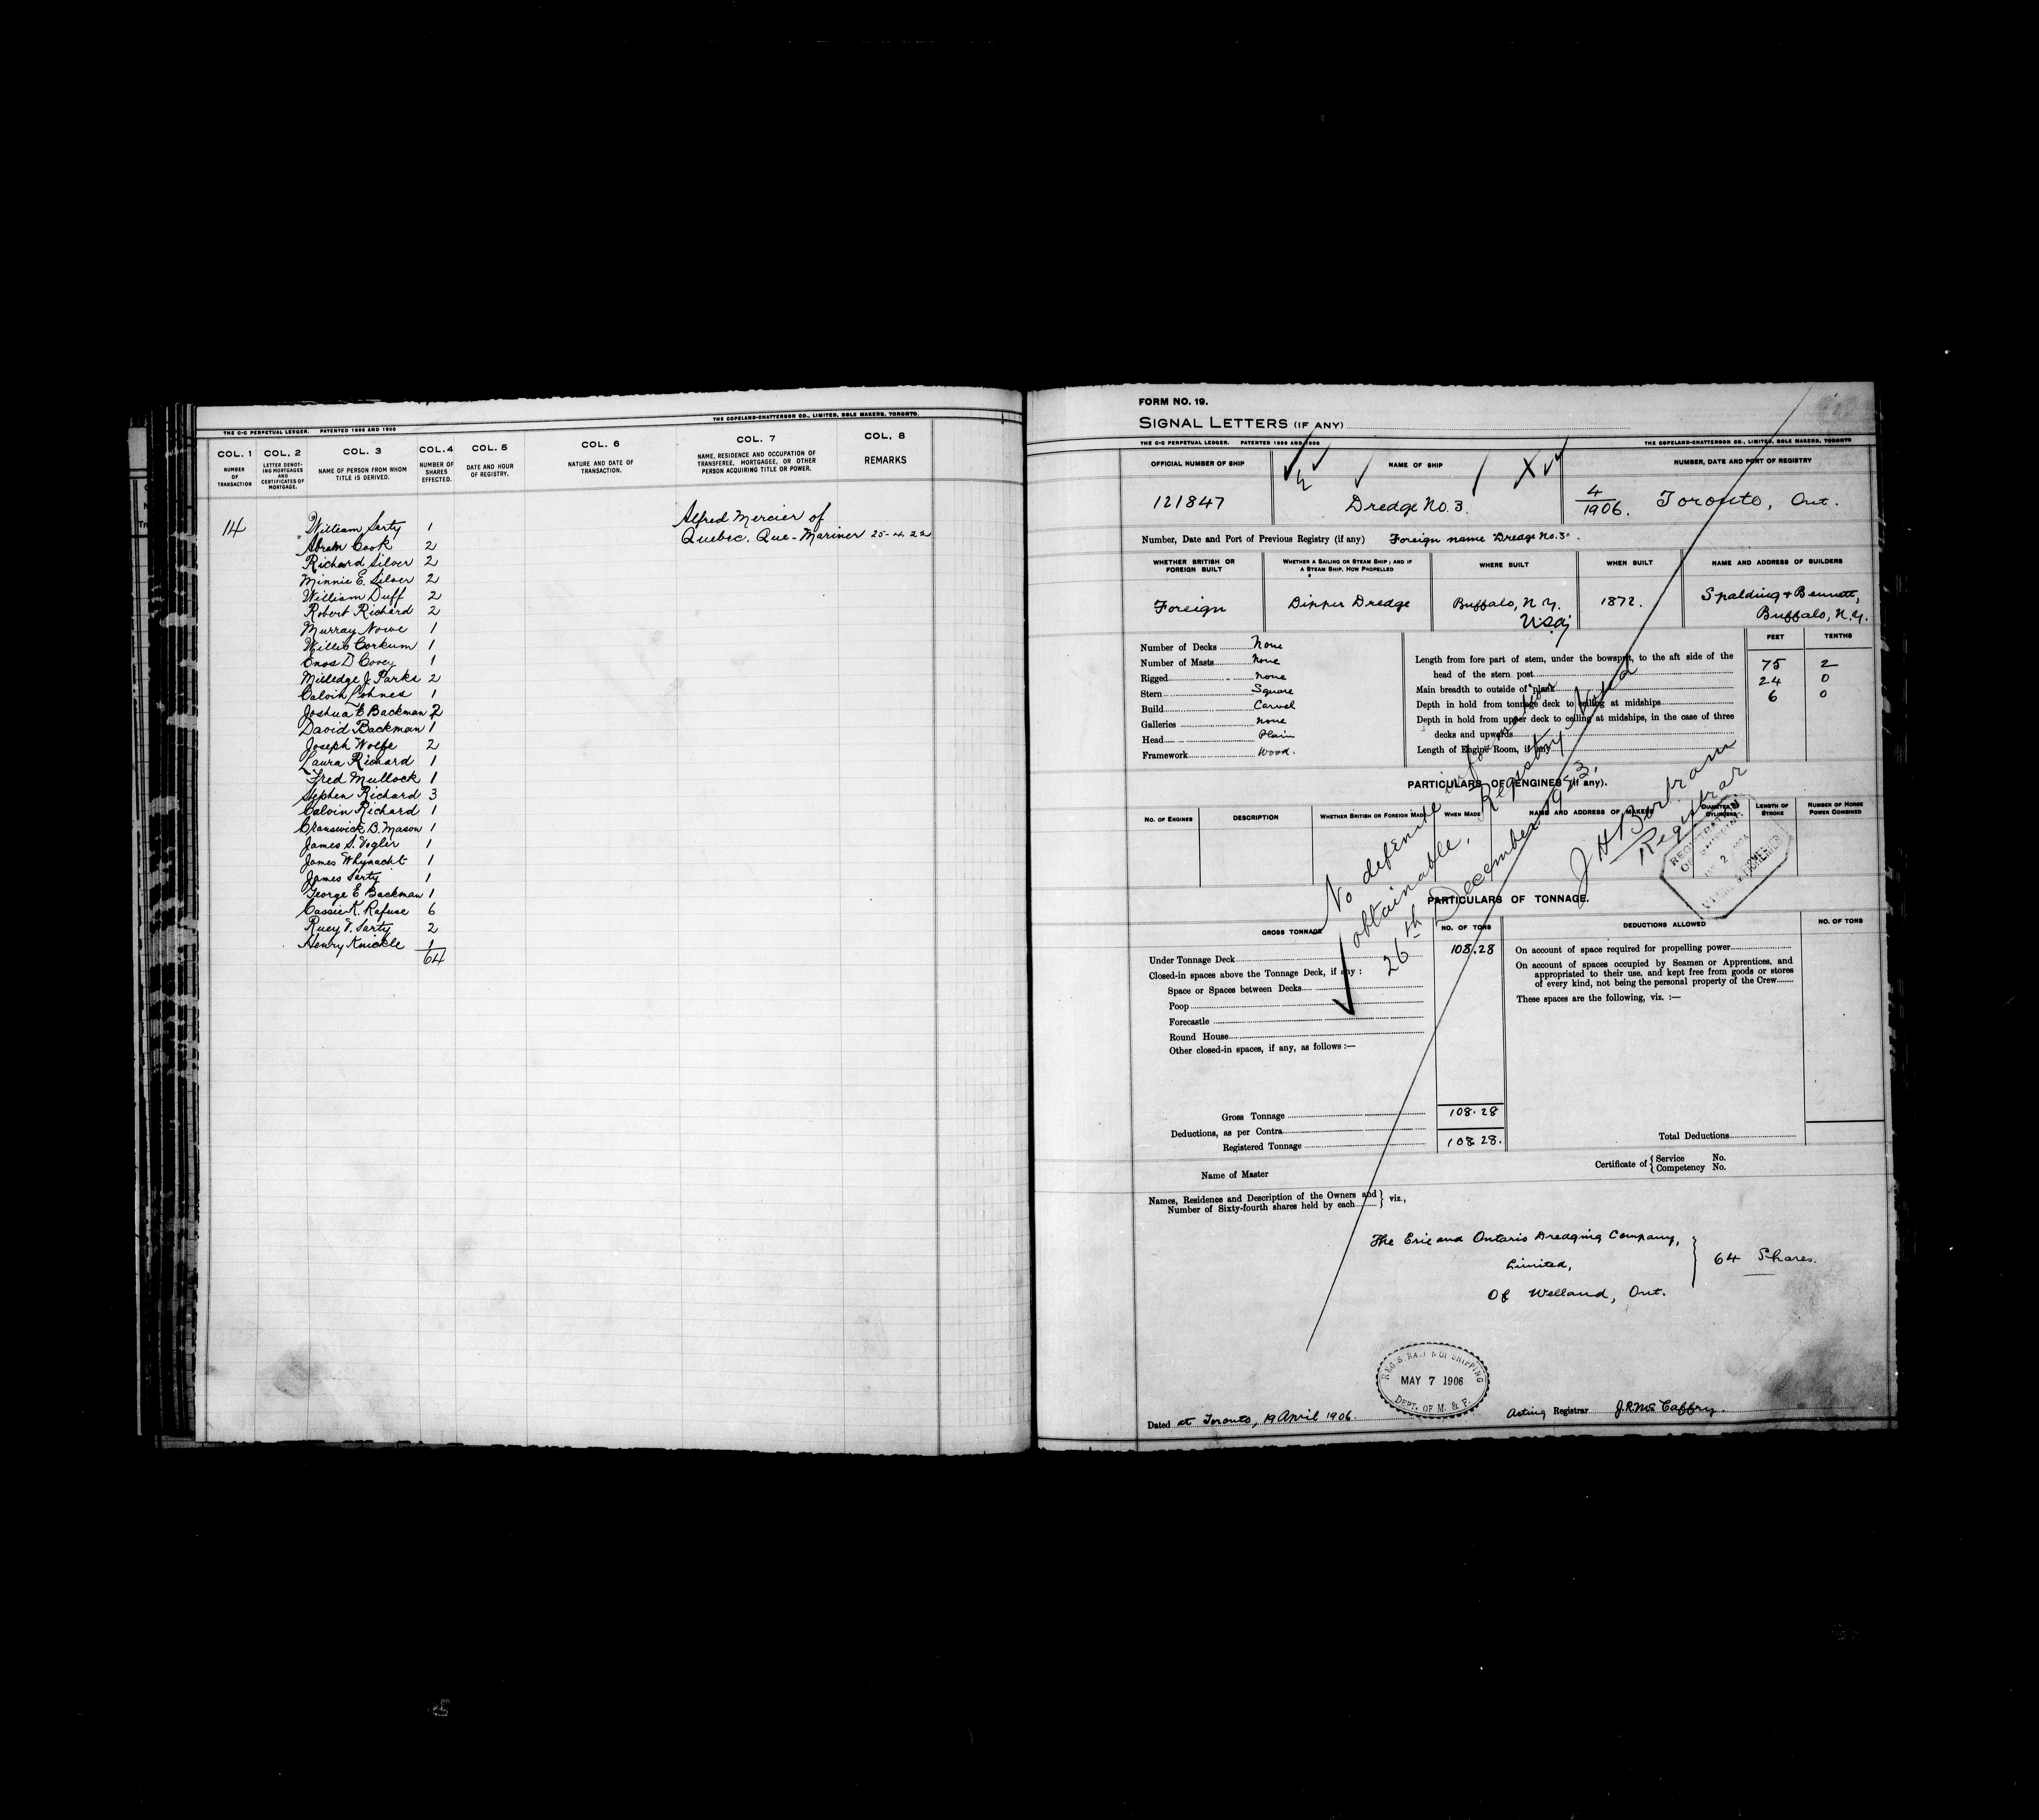 THE C-C PERPETUAL LEDGER. PATENTED 1896 AND 1900
THE COPELAND-CHATTERSON CO., LIMITED, SOLE MAKERS, TORONTO.
COL. 1 COL. 2 COL. 3 COL. 4 COL. 5 COL. 6 COL. 7 COL. 8
NUMBER OF TRANSACTION
LETTER DENOTING MORTGAGES AND CERTIFICATES OF MORTGAGE.
NAME OF PERSON FROM WHOM TITLE IS DERIVED.
NUMBER OF SHARES EFFECTED.
DATE AND HOUR OF REGISTRY.
NATURE AND DATE OF TRANSACTION.
NAME, RESIDENCE AND OCCUPATION OF TRANSFEREE, MORTGAGEE, OR OTHER PERSON ACQUIRING TITLE OR POWER.
REMARKS
14 William Sarty 1 Alfred Mercier of
Abram Cook 2 Quebec. Que - Mariner 25-4-22
Richard Silver 2
Minnie E. Silver 2
William Duff 2
Robert Richard 2
Murray Nowe 1
Willis Corkum 1
Enos D Covey 1
Milledge J. Parks 2
Calvin Lohnes 1
Joshua E Backman 2
David Backman 1
Joseph Wolfe 2
Laura Richard 1
Fred Mullock 1
Stephen Richard 3
Calvin Richard 1
Cranswick B. Mason 1
James S. Vogler 1
James Whynacht 1
James Sarty 1
George E Backman 1
Cassie K. Rafuse 6
Ruey V. Sarty 2
Henry Knickle 1
64
FORM NO. 19.
SIGNAL LETTERS (IF ANY)
THE C-C PERPETUAL LEDGER. PATENTED 1896 AND 1900
THE COPELAND-CHATTERSON CO., LIMITED, SOLE MAKERS, TORONTO
OFFICIAL NUMBER OF SHIP NAME OF SHIP NUMBER, DATE AND PORT OF REGISTRY
121847 Dredge No. 3. 4/1906. Toronto, Ont.
Number, Date and Port of Previous Registry (if any) Foreign name "Dredge No. 3".
WHETHER BRITISH OR FOREIGN BUILT
WHETHER A SAILING OR STEAM SHIP; AND IF A STEAM SHIP, HOW PROPELLED
WHERE BUILT
WHEN BUILT
NAME AND ADDRESS OF BUILDERS
Foreign Dipper Dredge Buffalo, N.Y. 1872. Spalding & Bennett,
USA Buffalo, N.Y.
FEET TENTHS
Number of Decks None
Number of Masts None
Rigged None
Stern Square
Build Carvel
Galleries None
Head Plain
Framework Wood.
Length from fore part of stem, under the bowsprit, to the aft side of the
head of the stern post 75 2
Main breadth to outside of plank 24 0
Depth in hold from tonnage deck to ceiling at midships 6 0
Depth in hold from upper deck to ceiling at midships, in the case of three
decks and upwards
Length of Engine Room, if any
PARTICULARS OF ENGINES (if any).
NO. OF ENGINES DESCRIPTION WHETHER BRITISH OR FOREIGN MADE WHEN MADE NAME AND ADDRESS OF MAKERS DIAMETER OF CYLINDERS LENGTH OF STROKE NUMBER OF HORSE POWER COMBINED
No definite information
obtainable, Registry closed
26th December 1923.
J H Bertram
Registrar
PARTICULARS OF TONNAGE.
GROSS TONNAGE NO. OF TONS DEDUCTIONS ALLOWED NO. OF TONS
Under Tonnage Deck 108.28
Closed-in spaces above the Tonnage Deck, if any :
Space or Spaces between Decks
Poop
Forecastle
Round House
Other closed-in spaces, if any, as follows :—
On account of space required for propelling power
On account of spaces occupied by Seamen or Apprentices, and
appropriated to their use, and kept free from goods or stores
of every kind, not being the personal property of the Crew
These spaces are the following, viz. :—
Gross Tonnage 108.28
Deductions, as per Contra
Registered Tonnage 108.28.
Total Deductions
Name of Master
Certificate of { Service No.
Competency No.
Names, Residence and Description of the Owners and
Number of Sixty-fourth shares held by each } viz.,
The Erie and Ontario Dredging Company,
Limited,
Of Welland, Ont.
64 Shares.
MAY 7 1906
DEPT. OF M. & F.
Dated at Toronto, 19 April 1906.
Acting Registrar J.R. McCaffry.